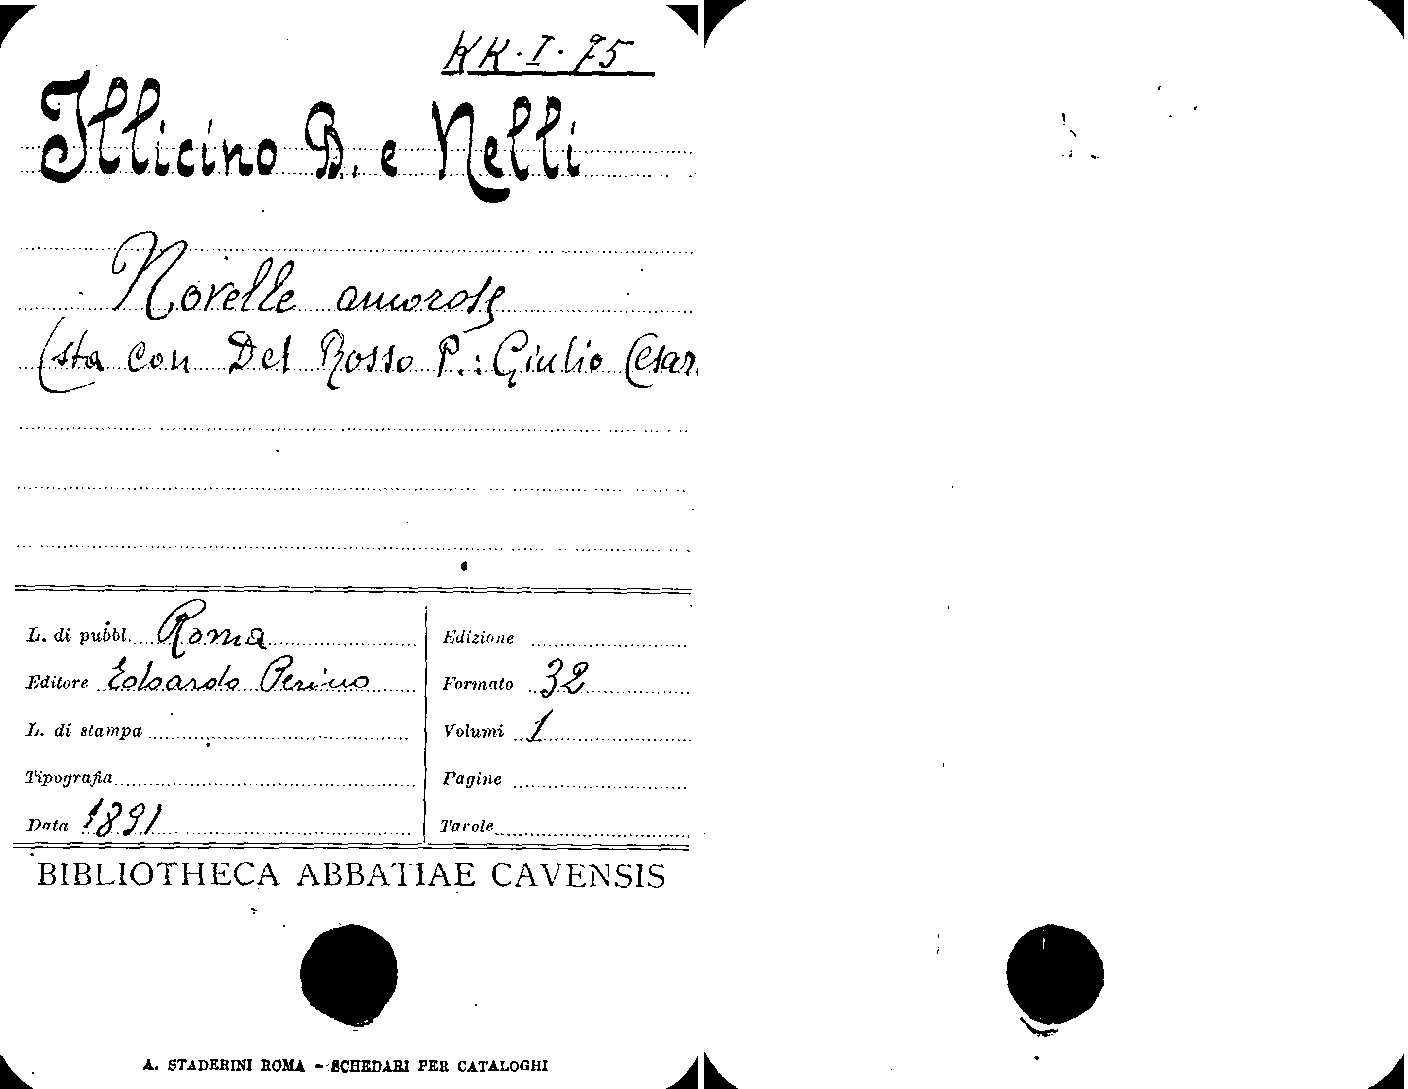 KK·I·75
Illicino B. e Nelli
Novelle amorose
(sta con Del Rosso P.: Giulio Cesar.
L. di pubbl. Roma
Edizione
Editore Edoardo Perino
Formato 32
L. di stampa
Volumi 1
Tipografia
Pagine
Data 1891
Tavole
BIBLIOTHECA ABBATIAE CAVENSIS
A. STADERINI ROMA - SCHEDARI PER CATALOGHI